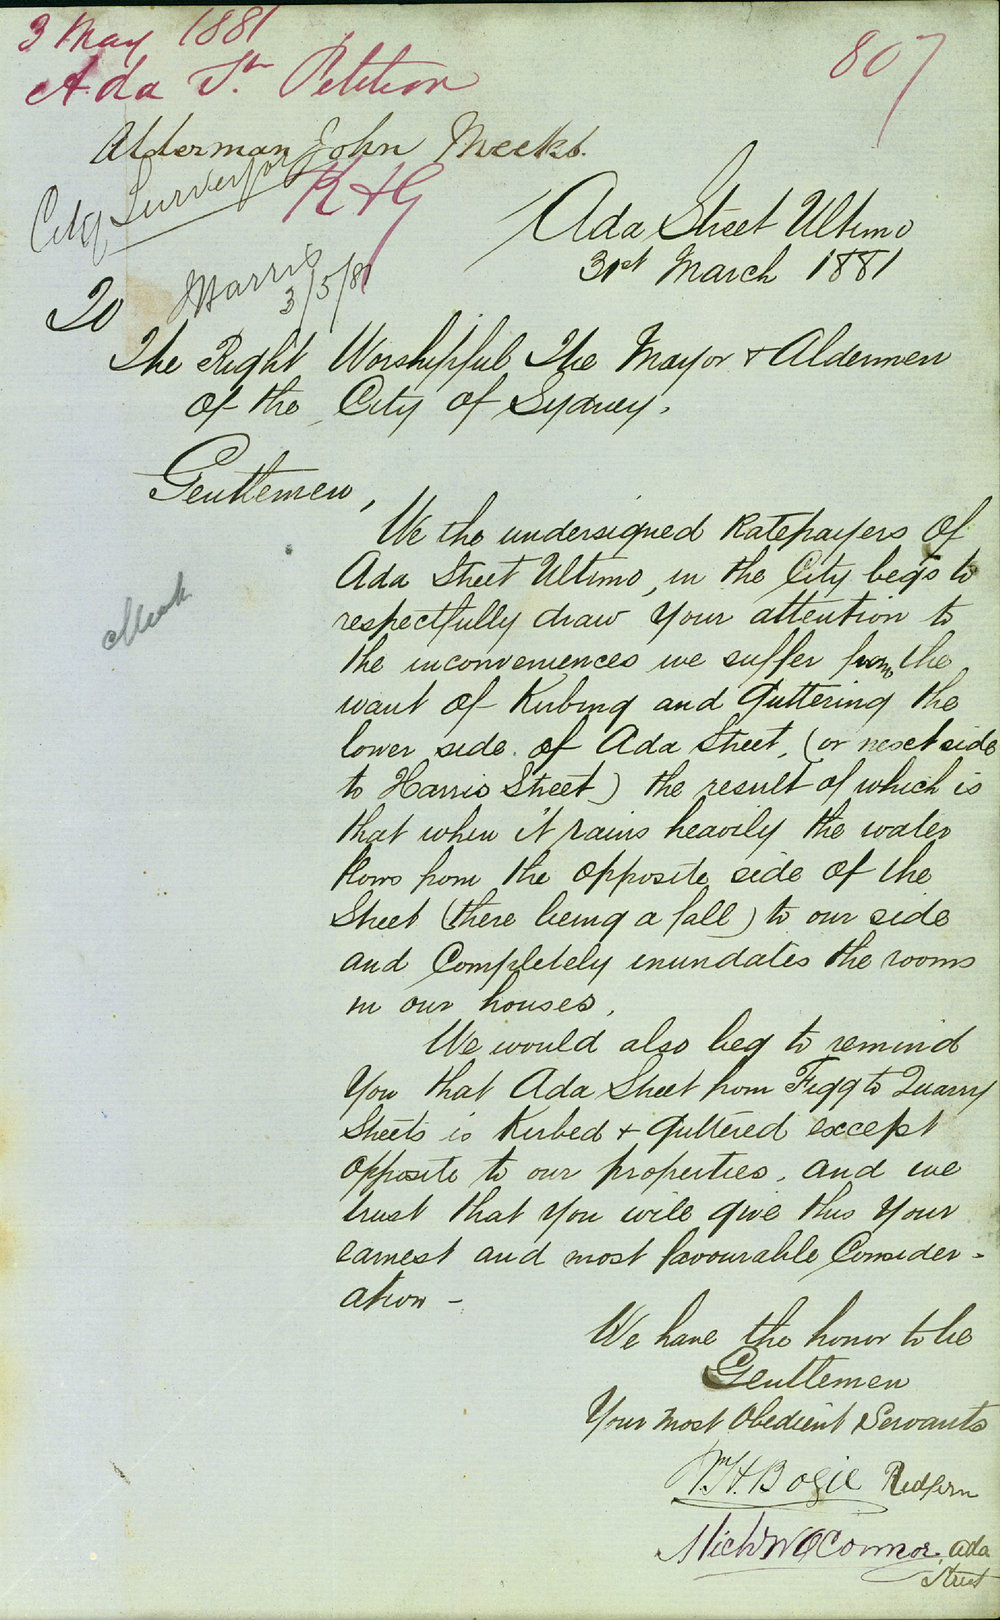 3 May 1881
Ada St. Petition
807
Alderman John Meeks.
City Surveyor
K & G
3/5/81
Ada Street Ultimo
31st March 1881
To
The Right Worshipful The Mayor & Aldermen
of the City of Sydney.
Gentlemen,
We the undersigned Ratepayers of
Ada Street Ultimo, in the City begs to
respectfully draw your attention to
the inconveniences we suffer from the
want of Kerbing and Guttering the
lower side of Ada Street, (or next side
to Harris Street) the result of which is
that when it rains heavily the water
flows from the opposite side of the
Street (there being a fall) to our side
and Completely inundates the rooms
in our houses.
We would also beg to remind
You that Ada Street from Figg to Quarry
Streets is Kerbed & guttered except
opposite to our properties, and we
trust that you will give this Your
earnest and most favourable Consider-
ation -
We have the honor to be
Gentlemen
Your most Obedient Servants
Wm H. Bogie Redfern
Michl O'Connor, Ada
Street